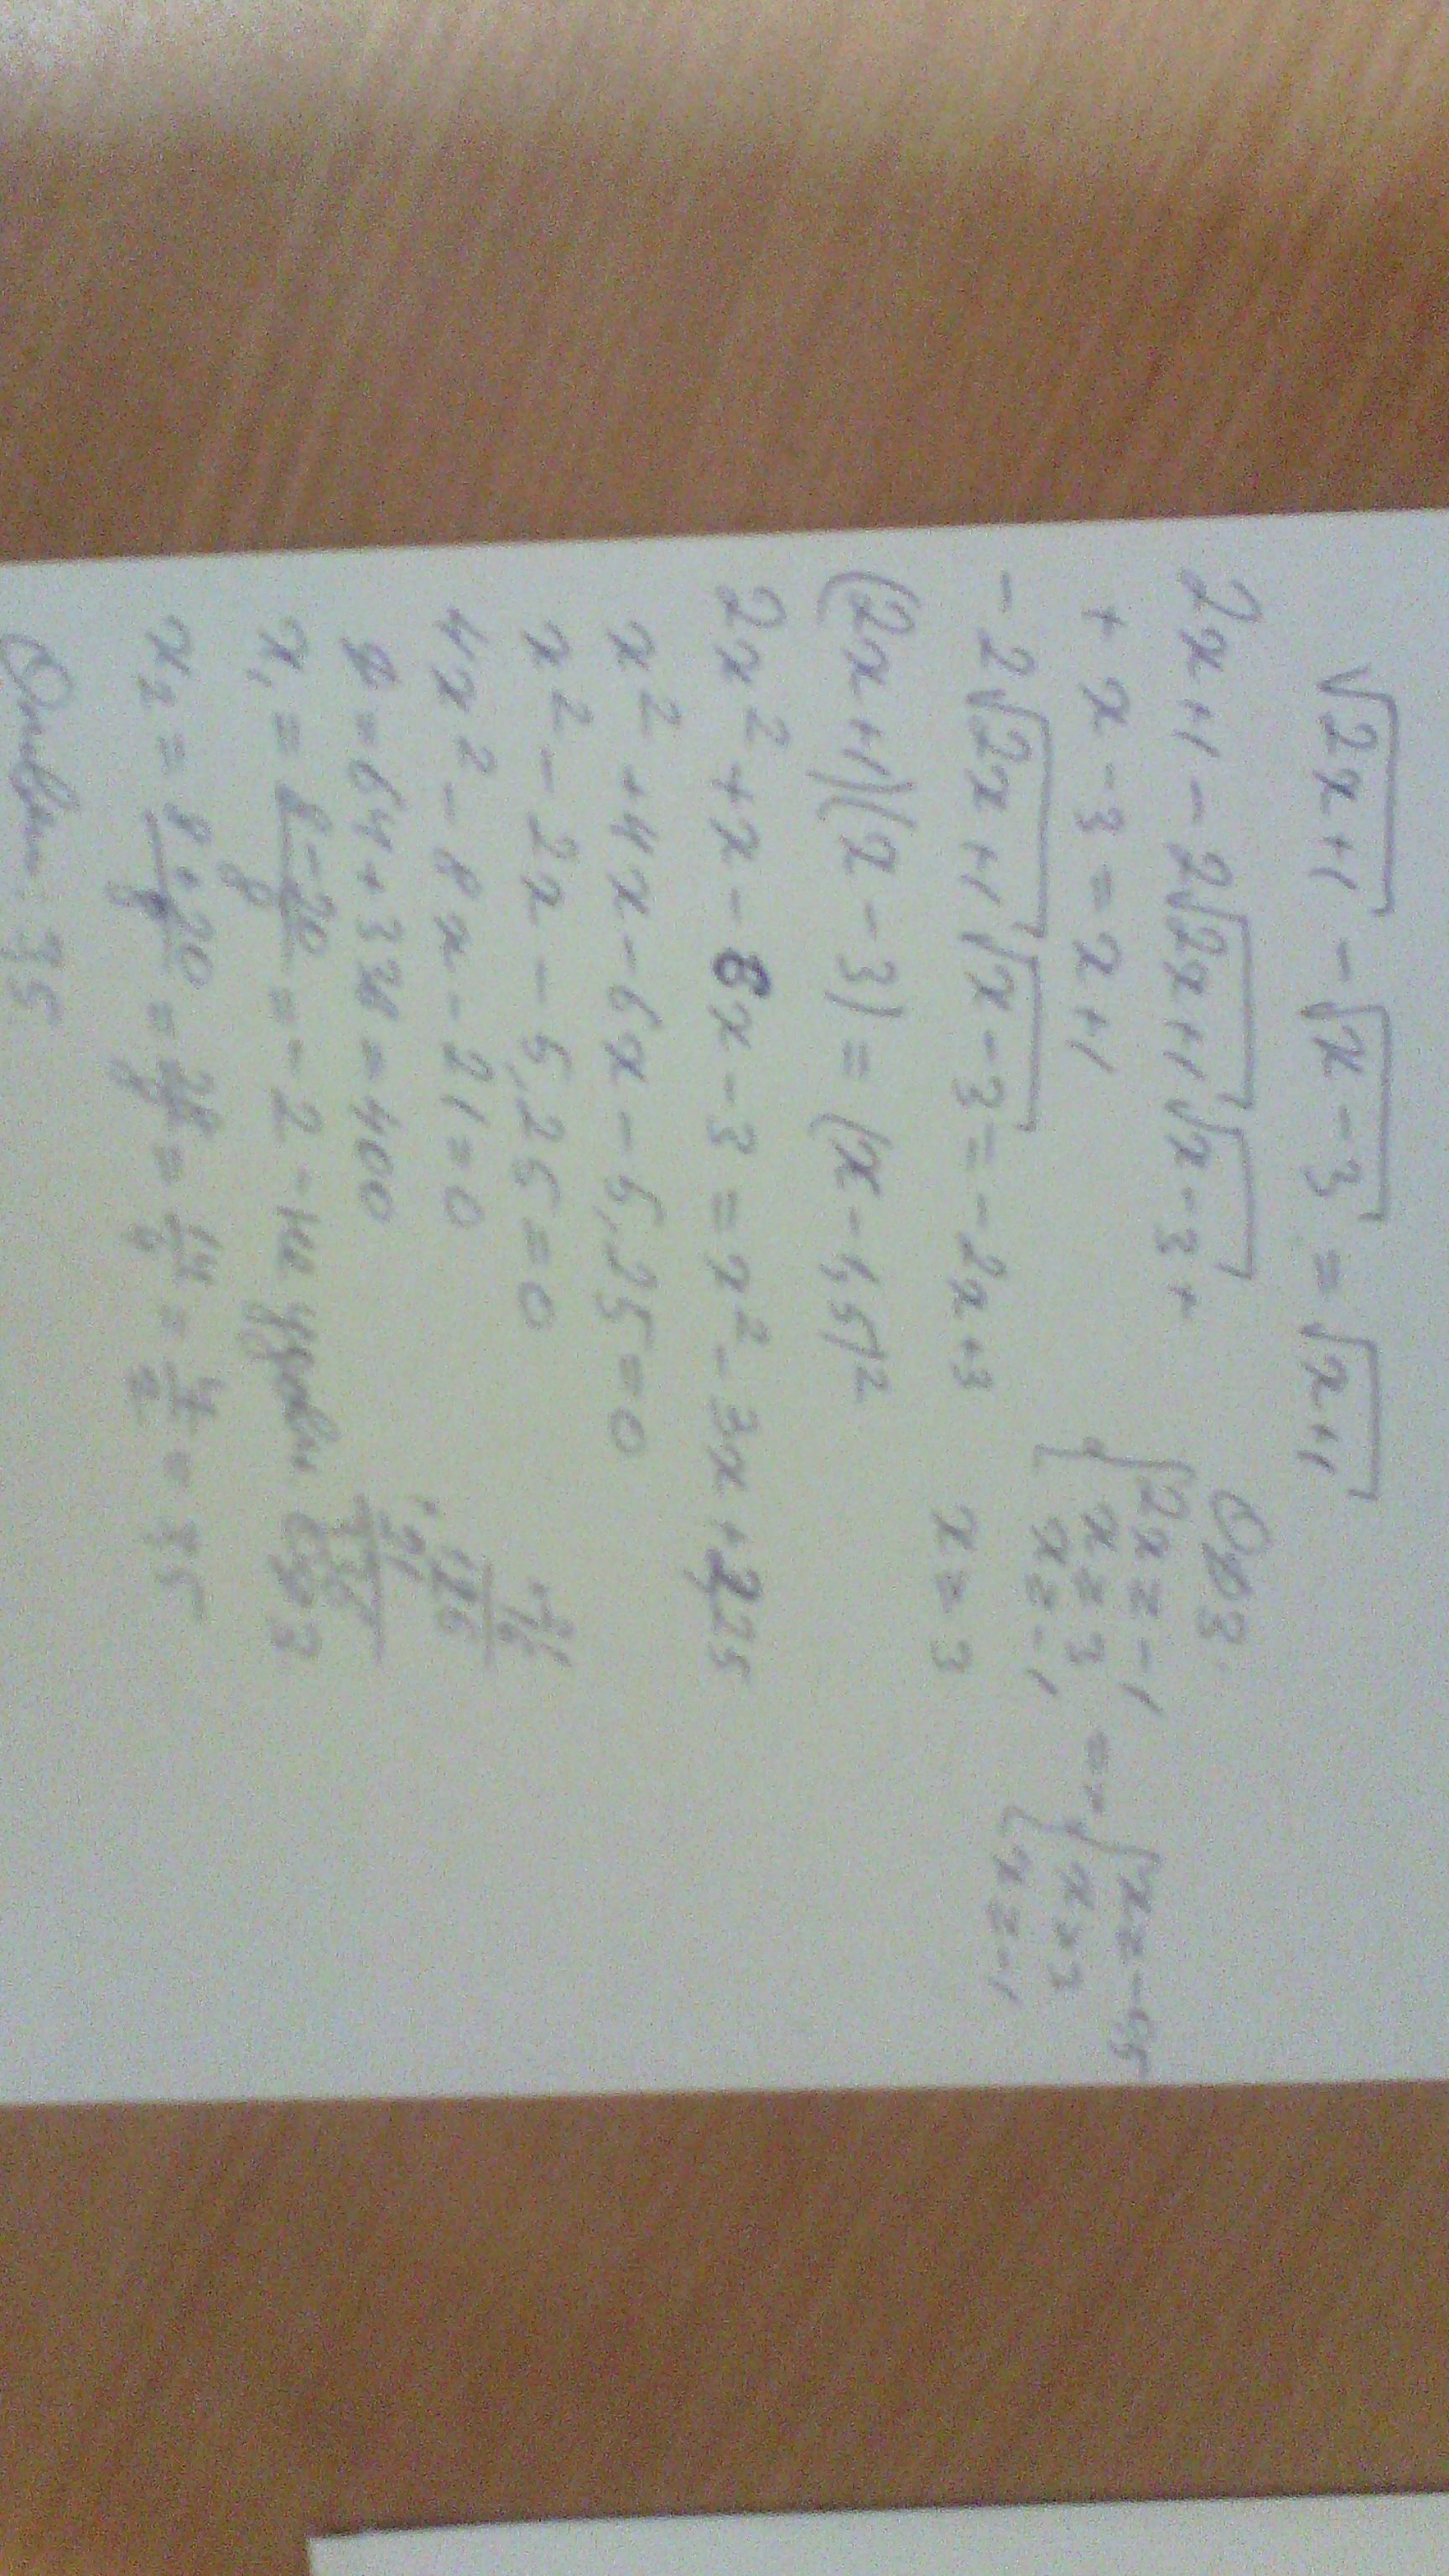 √2x+1 − √x−3 = √x+1
2x+1 − 2√2x+1 √x−3 +
+ x − 3 = x+1
− 2√2x+1 √x−3 = − 2x+3
(2x+1)(x − 3) = (x − 1,5)²
2x² + x − 6x − 3 = x² − 3x + 2,25
x² + 4x − 6x − 5,25 = 0
x² − 2x − 5,25 = 0
4x² − 8x − 21 = 0
D = 64 + 336 = 400
x₁ = 8−20/8 = − 2 − не удовл ОДЗ
x₂ = 8+20/8 = 28/8 = 14/4 = 7/2 = 3,5
Ответ: 3,5
ОДЗ.
{2x ≥ −1
x ≥ 3
x ≥ −1
=> {x ≥ −0,5
x ≥ 3
x ≥ −1
x ≥ 3